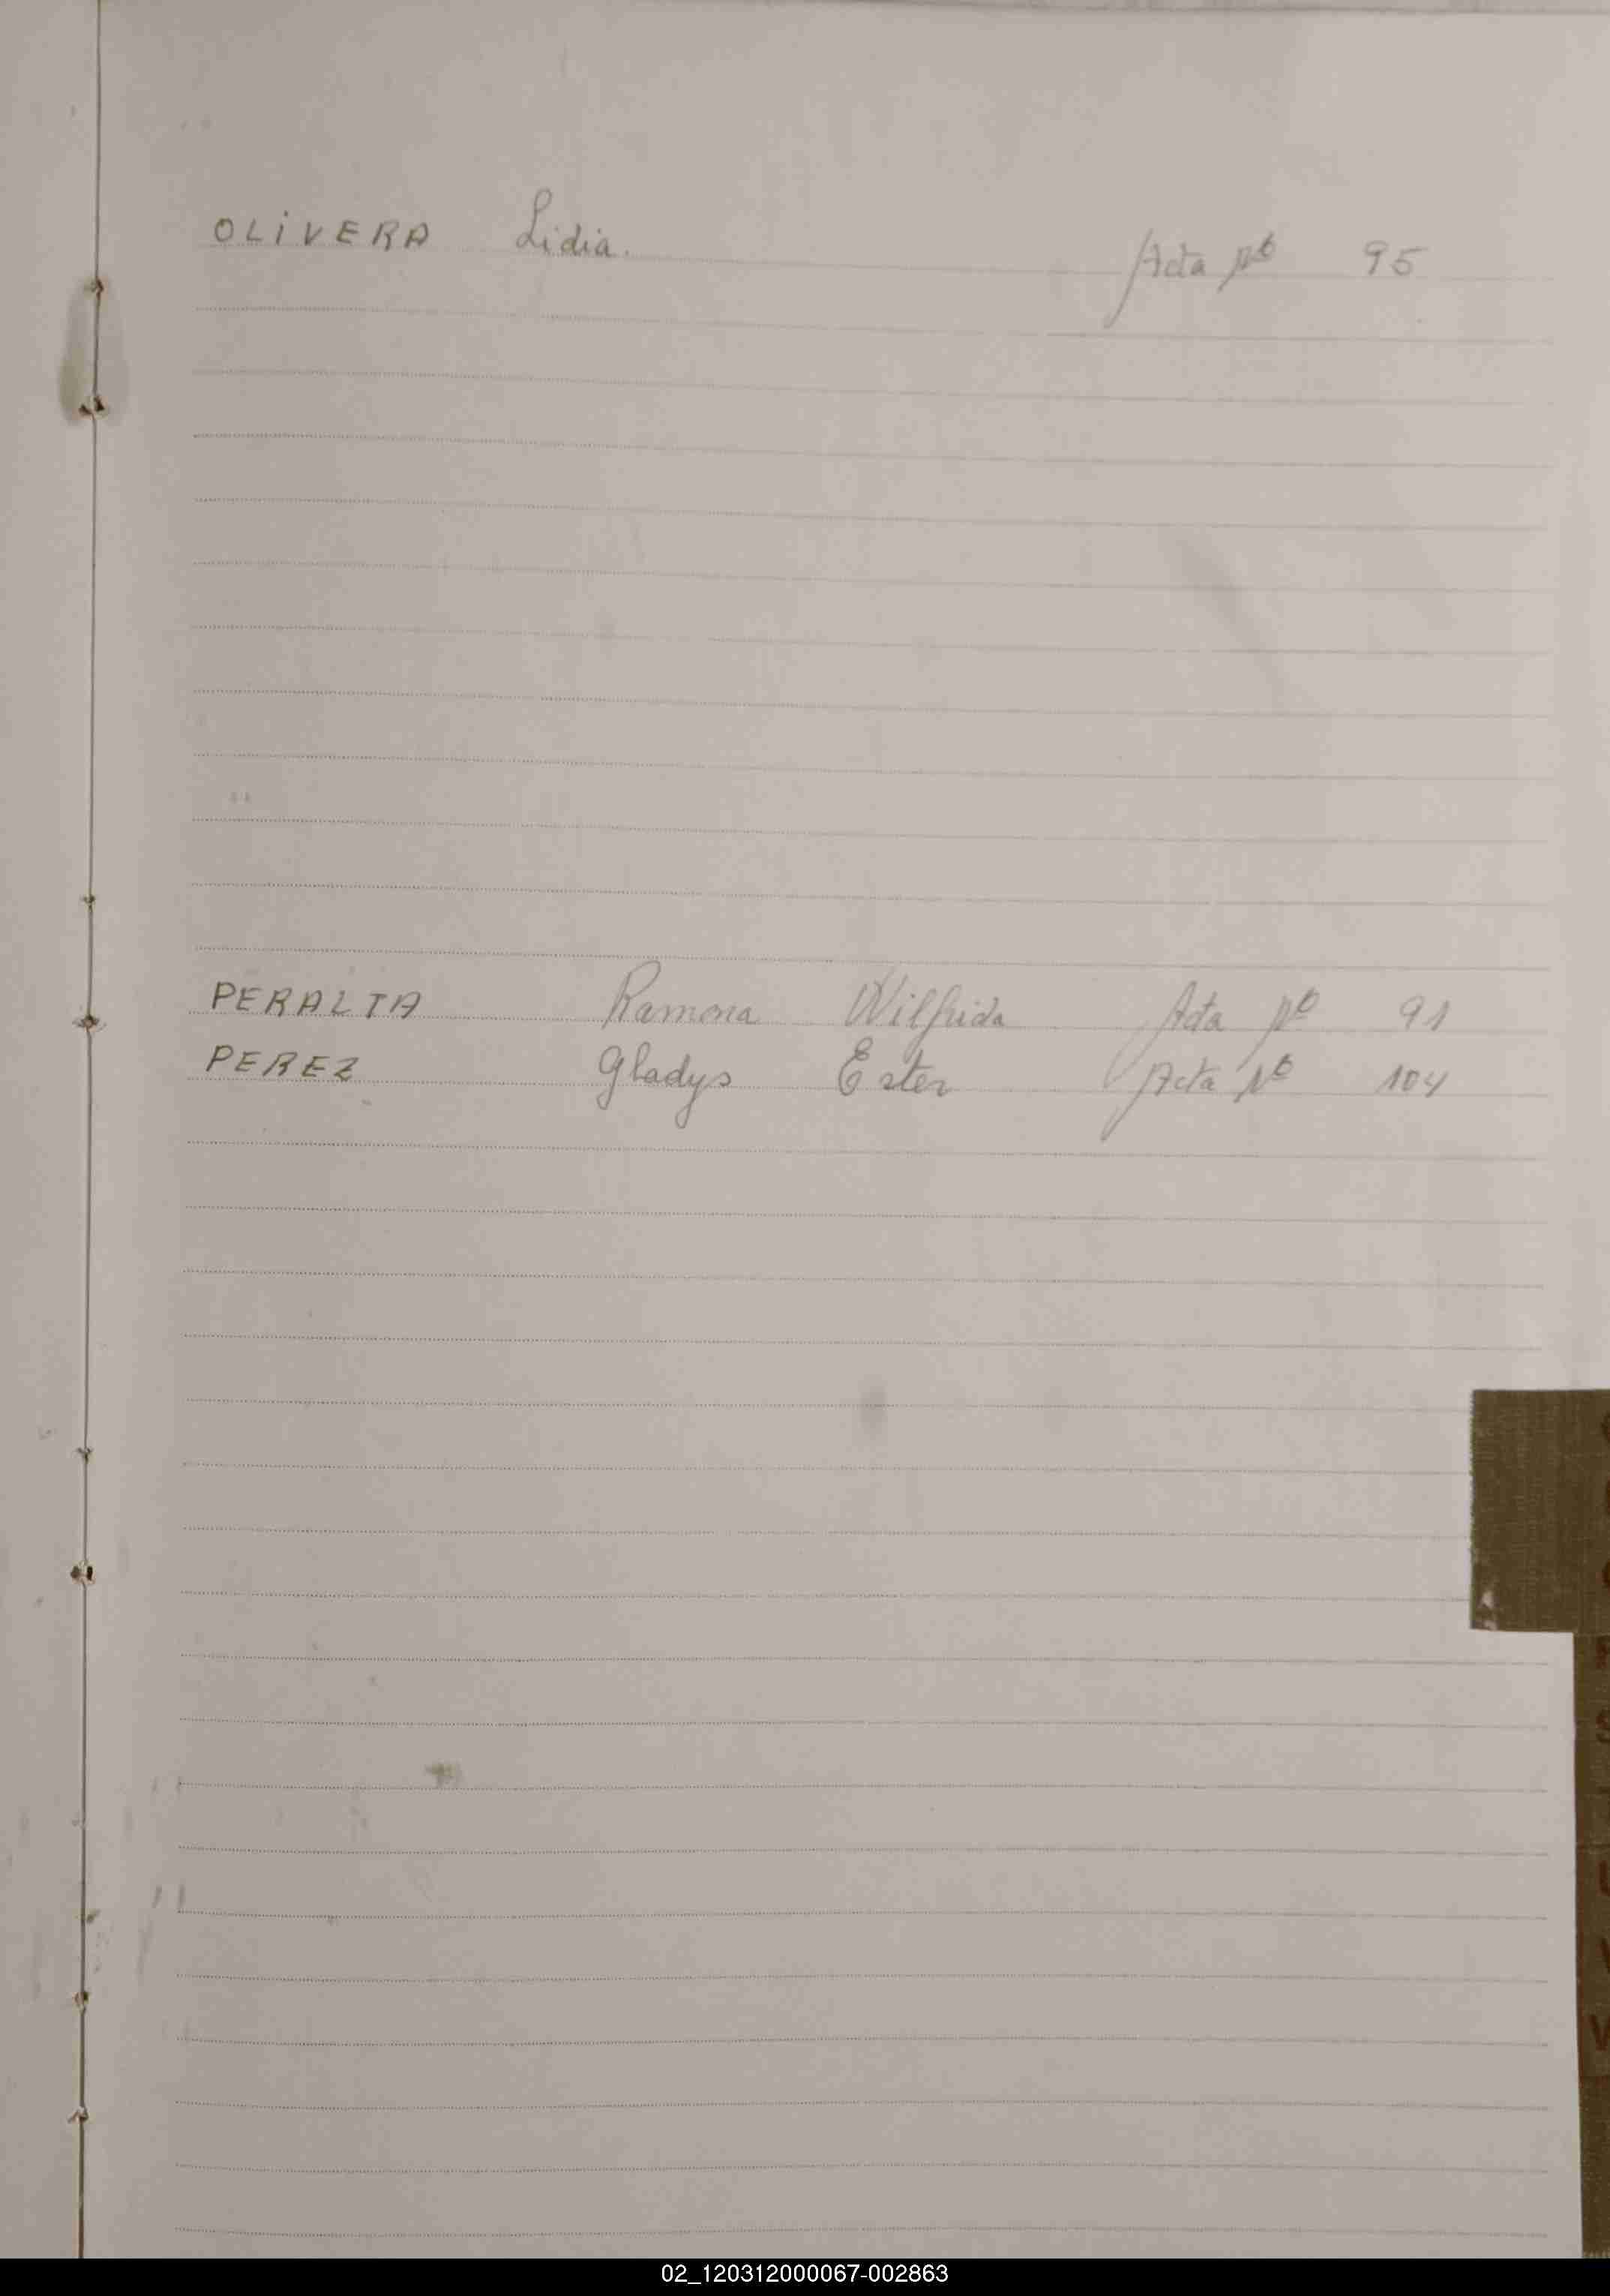 OLIVERA Lidia. Acta Nº 95
PERALTA Ramona Wilfrida Acta Nº 91
PEREZ Gladys Ester Acta Nº 104
R
S
T
U
V
W
02_120312000067-002863